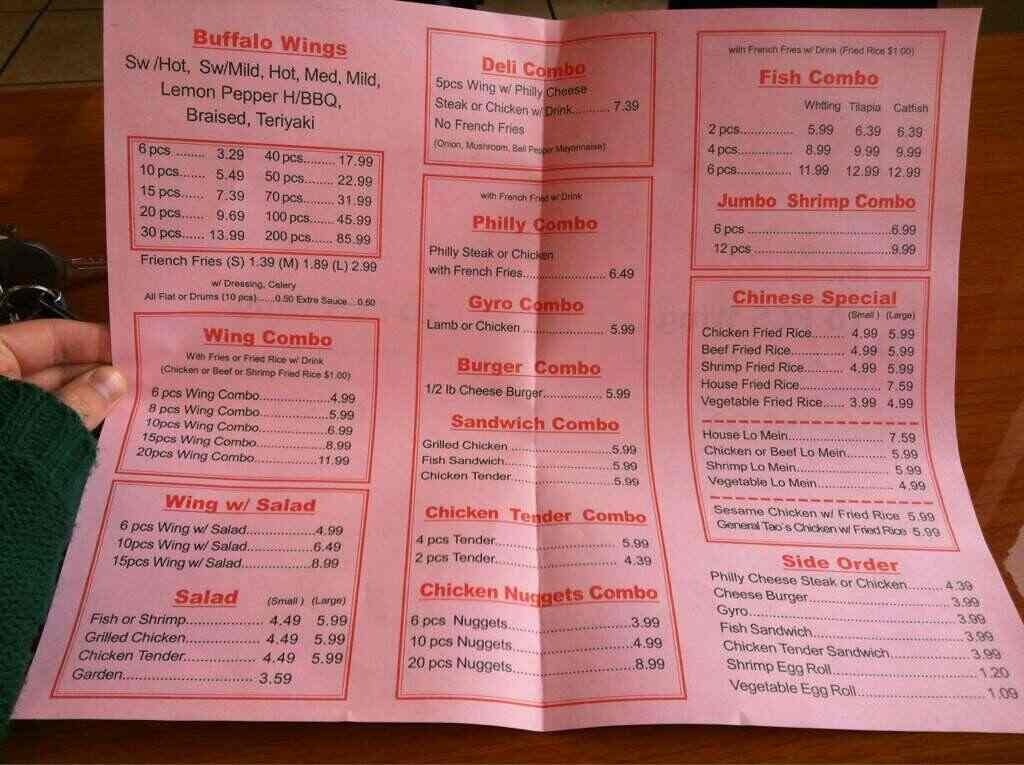 Buffalo Wings
Sw /Hot, Sw/Mild, Hot, Med, Mild,
Lemon Pepper H/BBQ,
Braised, Teriyaki
6 pcs ........ 3.29 40 pcs......... 17.99
10 pcs....... 5.49 50 pcs........ 22.99
15 pcs....... 7.39 70 pcs........ 31.99
20 pcs...... 9.69 100 pcs...... 45.99
30 pcs...... 13.99 200 pcs...... 85.99
Friench Fries (S) 1.39 (M) 1.89 (L) 2.99
w/ Dressing, Celery
All Flat or Drums (10 pcs)......0.50 Extra Sauce....0.50
Wing Combo
With Fries or Fried Rice w/ Drink
(Chicken or Beef or Shrimp Fried Rice $1.00)
6 pcs Wing Combo..................4.99
8 pcs Wing Combo..................5.99
10pcs Wing Combo..................6.99
15pcs Wing Combo..................8.99
20pcs Wing Combo................11.99
Wing w/ Salad
6 pcs Wing w/ Salad................4.99
10pcs Wing w/ Salad................6.49
15pcs Wing w/ Salad................8.99
Salad (Small ) (Large)
Fish or Shrimp.................. 4.49 5.99
Grilled Chicken................. 4.49 5.99
Chicken Tender................. 4.49 5.99
Garden............................... 3.59
Deli Combo
5pcs Wing w/ Philly Cheese
Steak or Chicken w/ Drink.......... 7.39
No French Fries
(Onion, Mushroom, Bell Pepper Mayonnaise)
with French Fried w/ Drink
Philly Combo
Philly Steak or Chicken
with French Fries....................... 6.49
Gyro Combo
Lamb or Chicken ....................... 5.99
Burger Combo
1/2 lb Cheese Burger................. 5.99
Sandwich Combo
Grilled Chicken ............................5.99
Fish Sandwich..............................5.99
Chicken Tender............................5.99
Chicken Tender Combo
4 pcs Tender............................... 5.99
2 pcs Tender............................... 4.39
Chicken Nuggets Combo
6 pcs Nuggets.............................3.99
10 pcs Nuggets............................4.99
20 pcs Nuggets............................8.99
with French Fries w/ Drink (Fried Rice $1.00)
Fish Combo
Whtling Tilapia Catfish
2 pcs............... 5.99 6.39 6.39
4 pcs............... 8.99 9.99 9.99
6 pcs............... 11.99 12.99 12.99
Jumbo Shrimp Combo
6 pcs .......................................6.99
12 pcs .....................................9.99
Chinese Special
(Small ) (Large)
Chicken Fried Rice........ 4.99 5.99
Beef Fried Rice............. 4.99 5.99
Shrimp Fried Rice.......... 4.99 5.99
House Fried Rice...................... 7.59
Vegetable Fried Rice...... 3.99 4.99
House Lo Mein......................... 7.59
Chicken or Beef Lo Mein........... 5.99
Shrimp Lo Mein......................... 5.99
Vegetable Lo Mein.................... 4.99
Sesame Chicken w/ Fried Rice 5.99
General Tao's Chicken w/ Fried Rice 5.99
Side Order
Philly Cheese Steak or Chicken......... 4.39
Cheese Burger.................................. 3.99
Gyro................................................... 3.99
Fish Sandwich................................... 3.99
Chicken Tender Sandwich................. 3.99
Shrimp Egg Roll................................ 1.20
Vegetable Egg Roll............................ 1.09